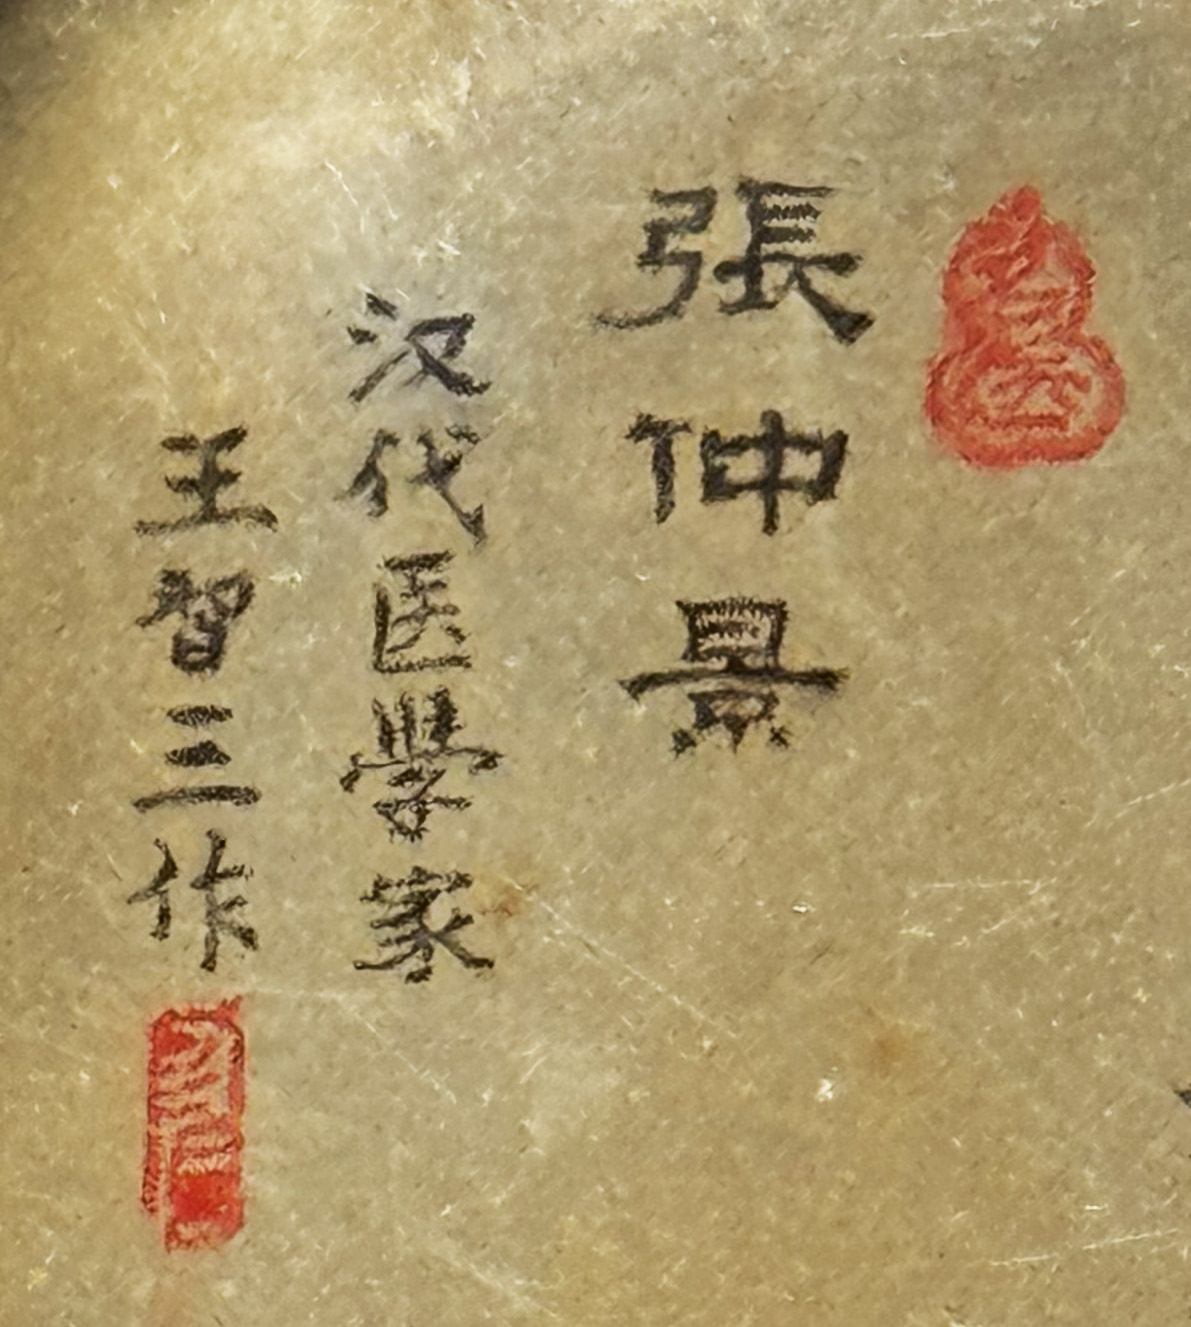 張仲景
汉代医學家
王智三作